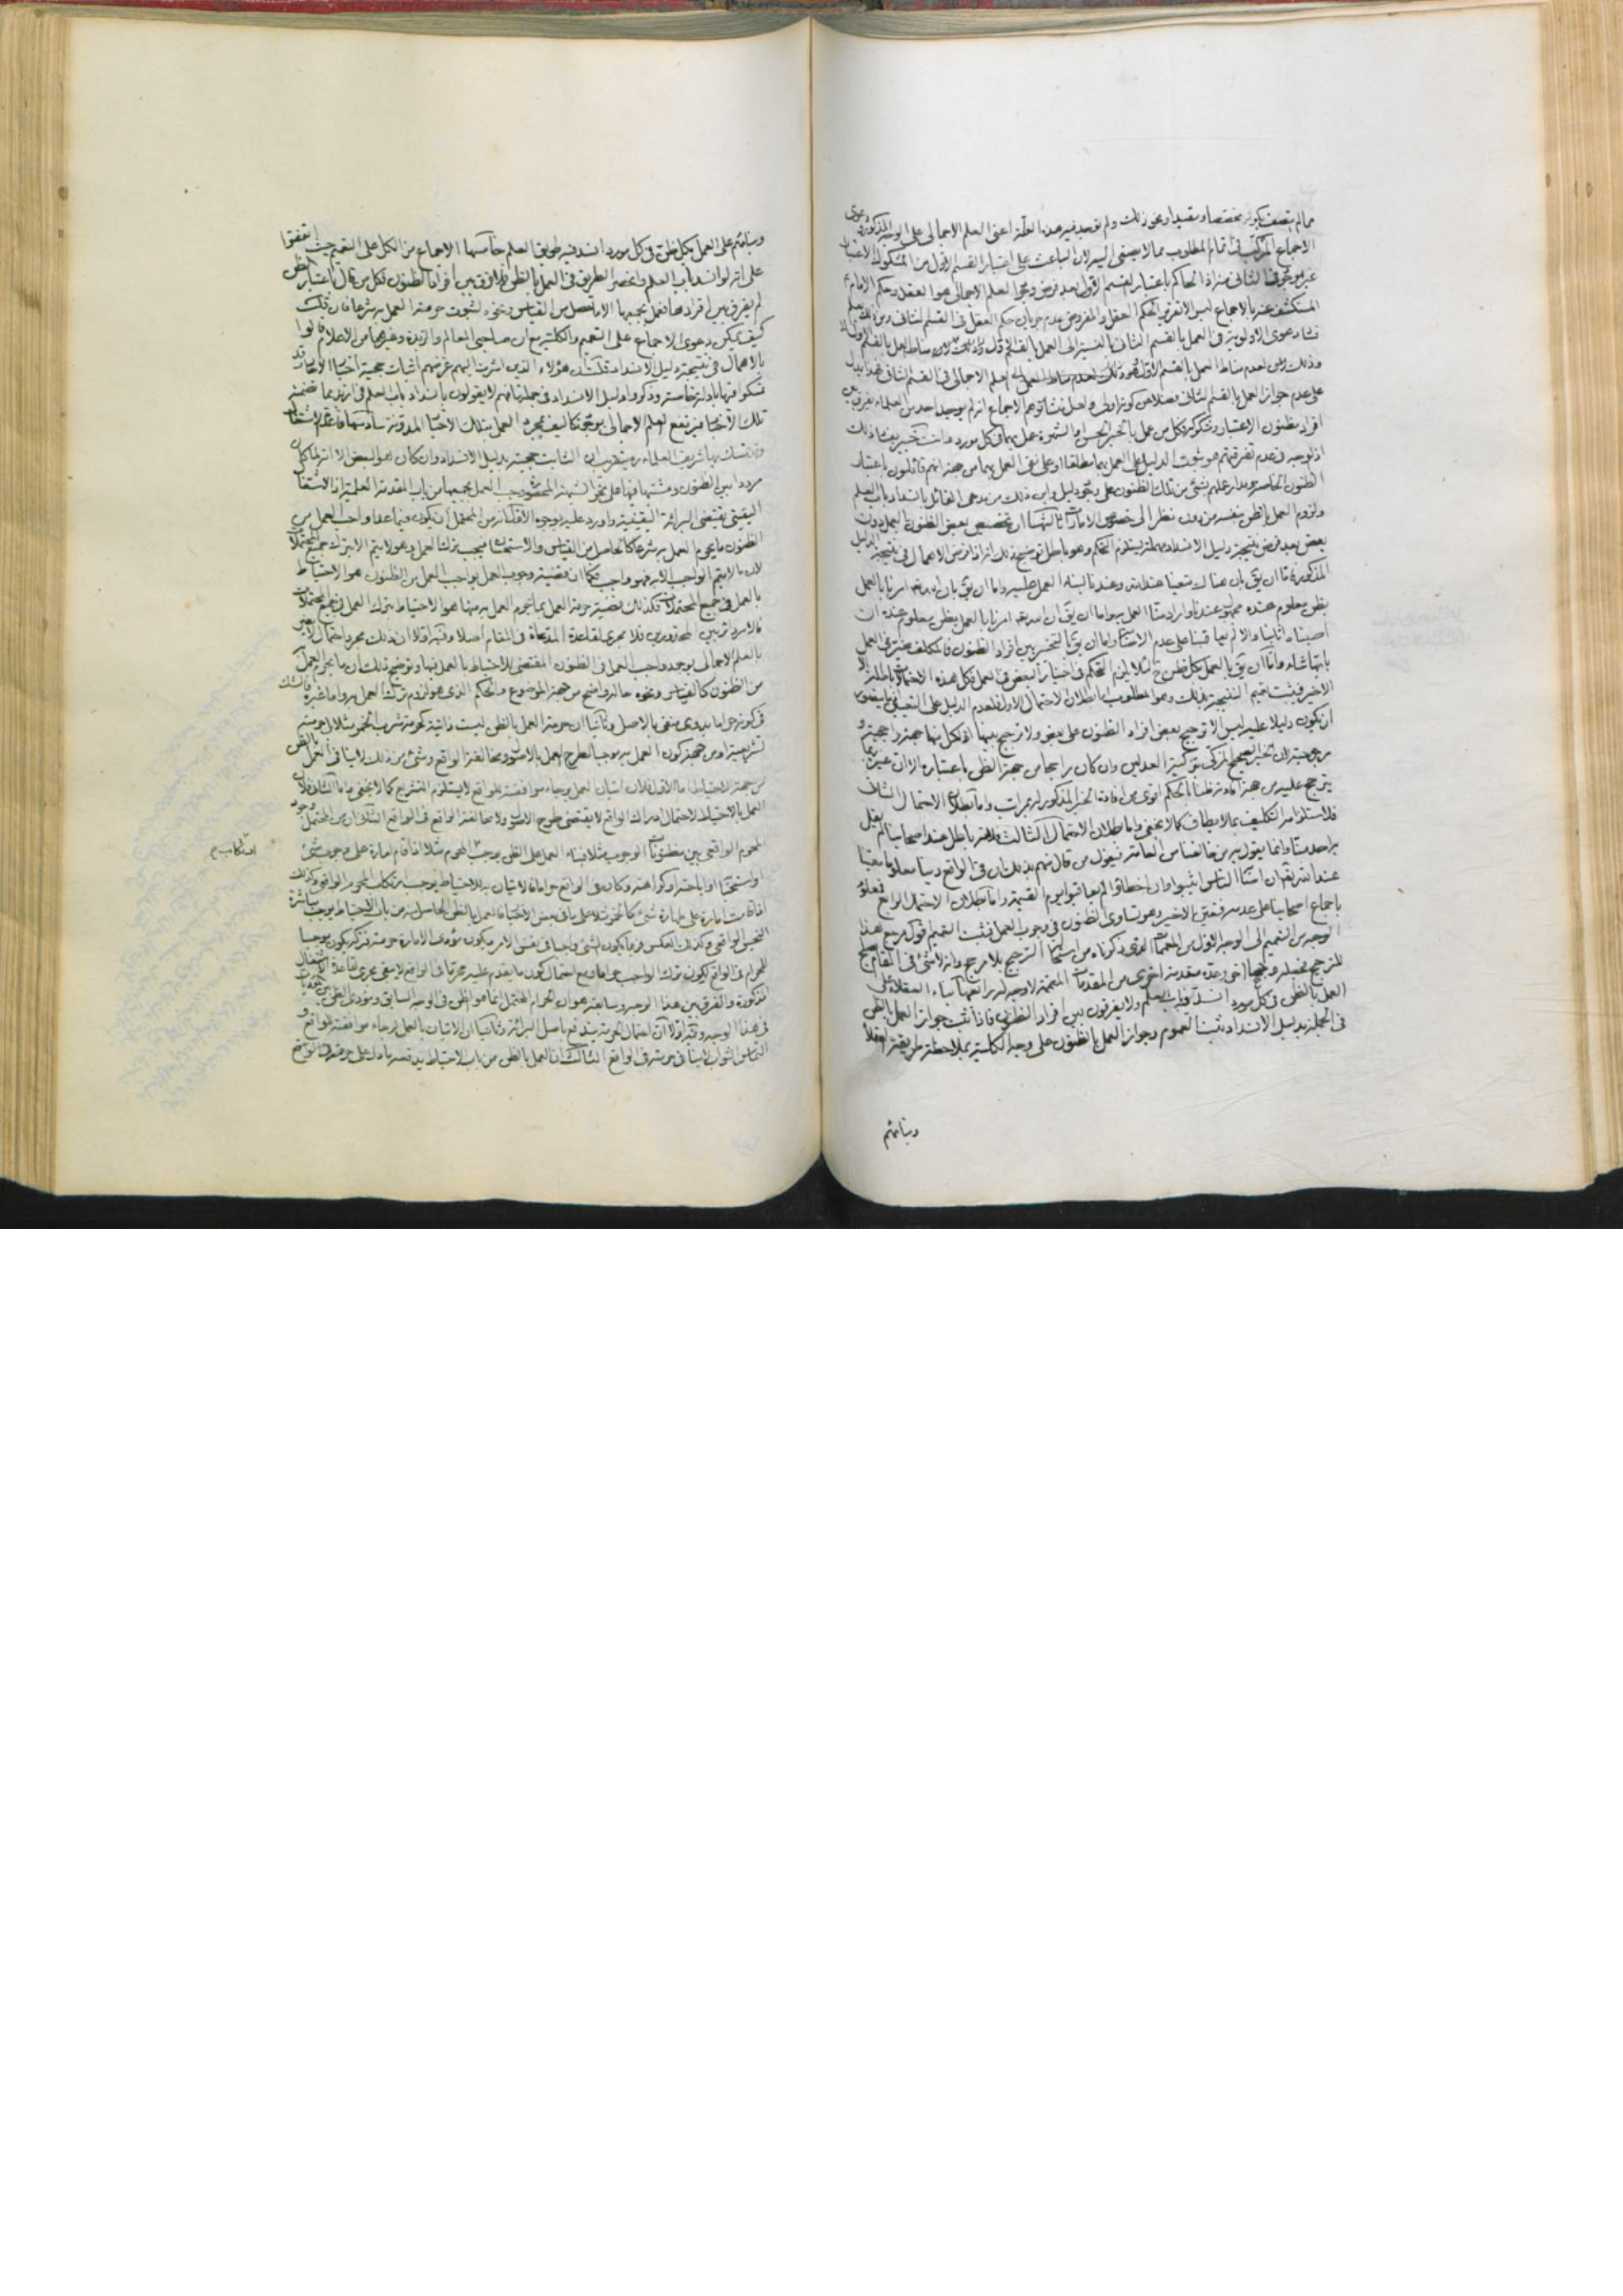 مما لم يتصف بكونه مخصصا ومقيدا ونحو ذلك ولم توجد فيه هذه العلة اعنى العلم الاجمالى على الوجه المذكور ودعوى
الاجماع المركب فى تمام المطلوب مما لا يصغى اليه لان الباعث على اعتبار القسم الاول من المشكوك الاعتبار
غير موجود فى الثانى اذ الحاكم باعتبار القسم الاول بعد فرض وجود العلم الاجمالى هو العقل وحكم الامام
المستكشف عنه بالاجماع ليس الا تقرير الحكم العقل والمفروض عدم جريان حكم العقل فى القسم الثانى ومن ذلك يعلم
فساد دعوى الاولوية فى العمل بالقسم الثانى بالنسبة الى العمل بالقسم الاول
وذلك لعدم مناط العمل بالقسم الاول العلم الاجمالى فى القسم الثانى فهذا دليل
على عدم جواز العمل بالقسم الثانى فضلا من كونه اولى ولعل منشأ توهم الاجماع انه لم يوجد احد من العلماء يفرق بين
افراد مظنون الاعتبار ومشكوكه فكل من عمل بالخبر الحسن او الشهرة عمل بهما فى كل مورد وانت خبير بفساد ذلك
اذ لا وجه فى عدم تفرقتهم هو ثبوت الدليل على العمل بهما مطلقا او على نفى العمل بهما من جهة انهم قائلون باعتبار
الظنون الخاصة ومدار علمهم بشئ من تلك الظنون على وجود دليل واين ذلك من يدعى القائل بانسداد باب العلم
ولزوم العمل بالظن بنفسه من دون نظر الى خصوص الامارات ثالثها ان تخصيص بعض الظنون بالعمل دون
بعض بعد فرض نتيجة دليل الانسداد مهملة يستلزم التحكم وهو باطل توضيح ذلك انه اذا فرض الاهمال فى نتيجة الدليل
المذكور فاما ان يق بان هناك متعينا عند الله وعندنا لبناء العمل عليه واما ان يق بان الله امرنا بالعمل
بظن معلوم عنده مجهول عندنا واراد منا العمل به واما ان يق ان الله امرنا بالعمل بظن معلوم عنده ان
اصبناه اثابنا والا لم يعاقبنا على عدم الاصابة واما ان يق بالتخيير بين افراد الظنون فالمكلف مخير فى العمل
بايها شاء واما ان يق بالعمل بكل ظن لئلا يلزم التحكم فى اختيار البعض فى العمل فكل هذه الاحتمالات باطلة الا
الاخير فيثبت تعميم النتيجة بذلك وهو المطلوب اما بطلان الاحتمال الاول فلعدم الدليل على التعيين
ان يكون دليلا عليه ليس الا ترجيح بعض افراد الظنون على بعض ولا ترجيح بينها اذ لكل منها جهة راجحية و
مرجوحية لان الخبر الصحيح المزكى بتزكية العدلين وان كان راجحا من جهة الظن باعتباره الا ان غيره ربما
يترجح عليه من جهة افادته ظنا بالحكم اقوى من افادة الخبر المذكور له بمراتب واما بطلان الاحتمال الثانى
فلاستلزامه التكليف بما لا يطاق كما لا يخفى واما بطلان الاحتمال الثالث فلانه باطل عند اصحابنا لم يقل
به احد منا وانما يقول به من خالفنا من العامة فيقول من قال منهم بذلك ان فى الواقع دينا معلوما معينا
عند الله تعالى ان اصابه الناس اثيبوا وان اخطاؤا لم يعاقبوا يوم القيمة واما بطلان الاحتمال الرابع فمعلوم
باجماع اصحابنا على عدمه فتعين الاخير وهو تساوى الظنون فى وجوب العمل فثبت التعميم فقول مرجع هذا
الوجه من التعميم الى الوجه الاول من المعممات الذى ذكرناه من استحالة الترجيح بلا مرجح وانه لا شئ فى المقام يصلح
للترجيح فجعله وجها اخر وعده مقدمة اخرى من المقدمات المعممة لا وجه له رابعها بناء العقلاء على
العمل بالظن فى كل مورد انسد فيه باب العلم ولا يفرقون بين افراد الظنون فاذا ثبت جواز العمل بالظن
فى الجملة بدليل الانسداد ثبت العموم وجواز العمل بالظنون على وجه الكلية بملاحظة طريقة العقلاء
وبنائهم
وبنائهم على العمل بكل ظن فى كل مورد انسد فيه طريق العلم خامسها الاجماع من الكل على التعميم حيث اتفقوا
على انه لو انسد باب العلم وانحصر الطريق فى العمل بالظن فلا فرق بين افراد الظنون فكل من قال باعتبار الظن
لم يفرق بين افرادها فعمل بجميعها الا ما تحصل من القياس ونحوه لثبوت حرمة العمل به شرعا فان قلت
كيف يمكن دعوى الاجماع على التعميم والكلية مع ان صاحبى المعالم والزبدة وغيرهما من الاعلام قالوا
بالاهمال فى نتيجة دليل الانسداد قلت ان هؤلاء الذين اشرت اليهم غرضهم اثبات حجية اخبار الاحاد وقد
تمسكوا فيها بادلة خاصة وذكروا دليل الانسداد فى جملتها فهم لا يقولون بانسداد باب العلم فى ازيد مما تضمنته
تلك الاخبار فيرتفع العلم الاجمالى بوجود تكاليف بمجرد العمل بتلك الاخبار المدونة سادسها قاعدة الاشتغال
وقد تمسك بها شريف العلماء وتقريبه ان الثابت حجيته بدليل الانسداد وان كان هو البعض الا انه لما كان
مرددا بين الظنون ومشتبها فيها على نحو الشبهة المحصورة وجب العمل بجميعها من باب المقدمة العلمية اذ الاشتغال
اليقينى يقتضى البرائة اليقينية واورد عليه بوجوه الاول انه من المحتمل ان يكون فيما عدا واجب العمل من
الظنون ما يحرم العمل به شرعا كالحاصل من القياس والاستحسان فيجب ترك العمل به وهو لا يتم الا بترك جميع المحتملات
لان ما لا يتم الواجب الا به فهو واجب فكما ان قضية وجوب العمل بواجب العمل من الظنون هو الاحتياط
بالعمل فى جميع المحتملات فكذلك قضية حرمة العمل بما يحرم العمل به منها هو الاحتياط بترك العمل فى جميع المحتملات
فالامر دائر بين المحذورين فلا مجرى لقاعدة المدعاة فى المقام اصلا وفيه اولا ان ذلك مجرد احتمال لا يضر
بالعلم الاجمالى بوجود واجب العمل فى الظنون المقتضى للاحتياط بالعمل فيها وتوضيح ذلك ان ما يحرم العمل
من الظنون كالقياس ونحوه حاله واضح من جهة الموضوع والحكم الذى هو لزوم ترك العمل به واما غيره فالشك
فى كونه حراما بدوى منفى بالاصل وثانيا ان حرمة العمل بالظن ليست ذاتية كحرمة شرب الخمر مثلا بل حرمته
تشريعية او من جهة كون العمل به موجبا لطرح العمل بالاصول ومخالفة الواقع وشئ من ذلك لا ينافى العمل بالظن
من جهة الاحتياط اما الاول فلان اتيان العمل برجاء موافقته للواقع لا يستلزم التشريع كما لا يخفى واما الثانى فلان
العمل بالاحتياط لاحتمال ادراك الواقع لا يقتضى طرح الاصول ولا مخالفة الواقع فى الواقع الثانى ان من المحتمل وجود
المحرم الواقعى بين مظنونات الوجوب مثلا فبناء العمل على الظن يوجب المحرم مثلا اذا قام امارة على وجوب شئ
او استحبابه او اباحته او كراهته وكان فى الواقع حراما فالاتيان به للاحتياط يوجب ارتكاب المحرم الواقعى وكذلك
اذا قامت امارة على طهارة شئ كالخمر مثلا على ما فى بعض الاخبار فالعمل بالظن الحاصل منه من باب الاحتياط يوجب مباشرة
النجس الواقعى وكذلك العكس فربما يكون الشئ واجبا فى نفس الامر ويكون مؤدى الامارة حرمته فتركه يكون موجبا
للحرام فى الواقع لكون ترك الواجب حراما ومع احتمال كون ما يقدم عليه محرما فى الواقع لا يبقى مجرى لقاعدة الاشتغال
المذكورة والفرق بين هذا الوجه وسابقه هو ان الحرام المحتمل انما هو الظن فى الوجه السابق ومؤدى الظن
فى هذا الوجه وفيه اولا ان احتمال الحرمة يندفع باصل البرائة وثانيا ان الاتيان بالعمل لرجاء موافقته للواقع و
التماس الثواب لا ينافى حرمته فى الواقع الثالث ان العمل بالظن من باب الاحتياط